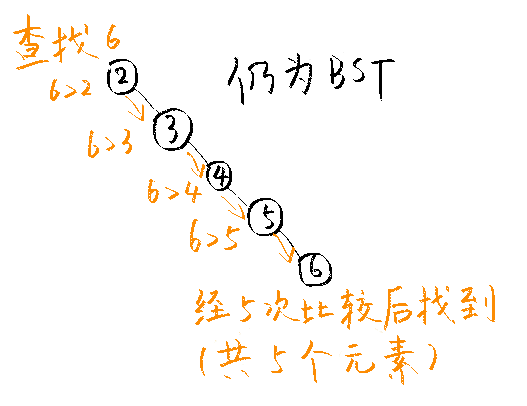 查找6
6>2
②
仍为BST
6>3
③
6>4
④
6>5
⑤
⑥
经5次比较后找到
(共5个元素)